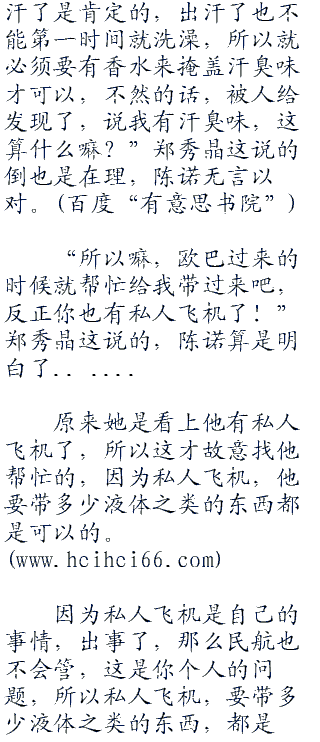 汗了是肯定的，出汗了也不
能第一时间就洗澡，所以就
必须要有香水来掩盖汗臭味
才可以，不然的话，被人给
发现了，说我有汗臭味，这
算什么嘛？”郑秀晶这说的
倒也是在理，陈诺无言以
对。(百度“有意思书院”)
“所以嘛，欧巴过来的
时候就帮忙给我带过来吧，
反正你也有私人飞机了！”
郑秀晶这说的，陈诺算是明
白了.. ....
原来她是看上他有私人
飞机了，所以这才故意找他
帮忙的，因为私人飞机，他
要带多少液体之类的东西都
是可以的。
(www.hcihci66.com)
因为私人飞机是自己的
事情，出事了，那么民航也
不会管，这是你个人的问
题，所以私人飞机，要带多
少液体之类的东西，都是